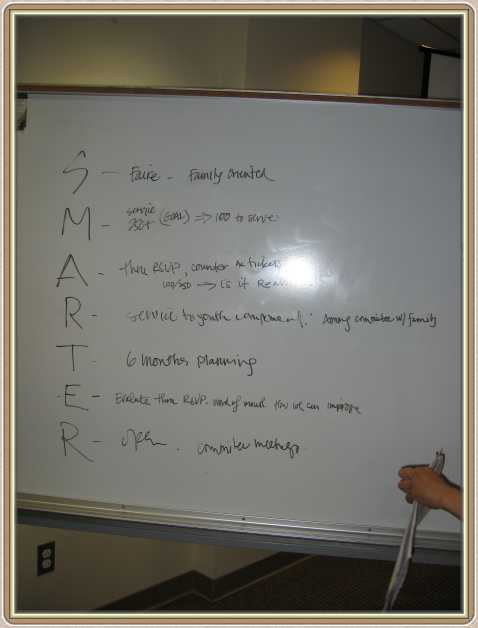 S - Faire - Family oriented
M - service (GOAL) => 100 to serve
A - thru RSVP, counter tickets
100/350 -> Is it
R - service to youth component. Among committee w/ family
T - 6 months planning
E - Evaluate thru RSVP. word of mouth how we can improve
R - open. committee meetings.